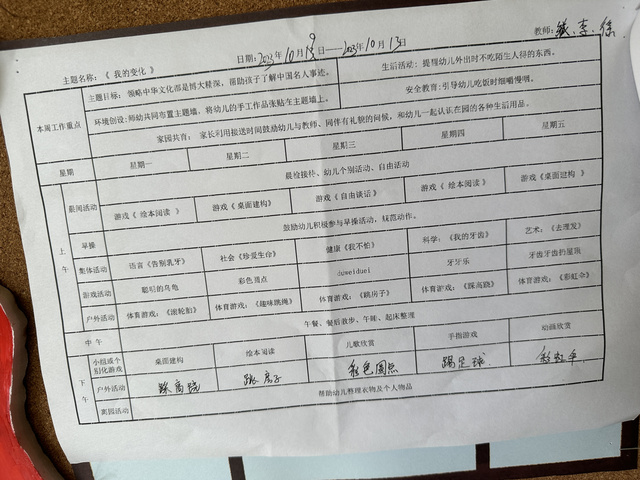 教师：钱.李.徐
主题名称：《 我的变化 》 日期：2023年10月9日——2023年10月13日
本周工作重点 主题目标：领略中华文化都是博大精深，帮助孩子了解中国名人事迹。 生活活动：提醒幼儿外出时不吃陌生人得的东西。
环境创设:师幼共同布置主题墙，将幼儿的手工作品张贴在主题墙上。 安全教育:引导幼儿吃饭时细嚼慢咽。
家园共育： 家长利用接送时间鼓励幼儿与教师、同伴有礼貌的问候，和幼儿一起认识在园的各种生活用品。
星期 星期一 星期二 星期三 星期四 星期五
上午 晨间活动 晨检接待、幼儿个别活动、自由活动
游戏《 绘本阅读 》 游戏《 桌面建构》 游戏《自由谈话》 游戏《 绘本阅读 》 游戏《桌面建构 》
早操 鼓励幼儿积极参与早操活动，规范动作。
集体活动 语言《告别乳牙》 社会《珍爱生命》 健康《我不怕》 科学：《我的牙齿》 艺术：《去理发》
游戏活动 聪明的乌龟 彩色圆点 duweiduei 牙牙乐 牙齿牙齿扔屋顶
户外活动 体育游戏：《滚轮胎》 体育游戏：《趣味跳绳》 体育游戏：《跳房子》 体育游戏：《踩高跷》 体育游戏：《彩虹伞》
中午 午餐、餐后散步、午睡、起床整理
下午 小组或个别化游戏 桌面建构 绘本阅读 儿歌欣赏 手指游戏 动画欣赏
户外活动 踩高跷 跳房子 彩色圆点 踢足球 彩虹伞
离园活动 帮助幼儿整理衣物及个人物品